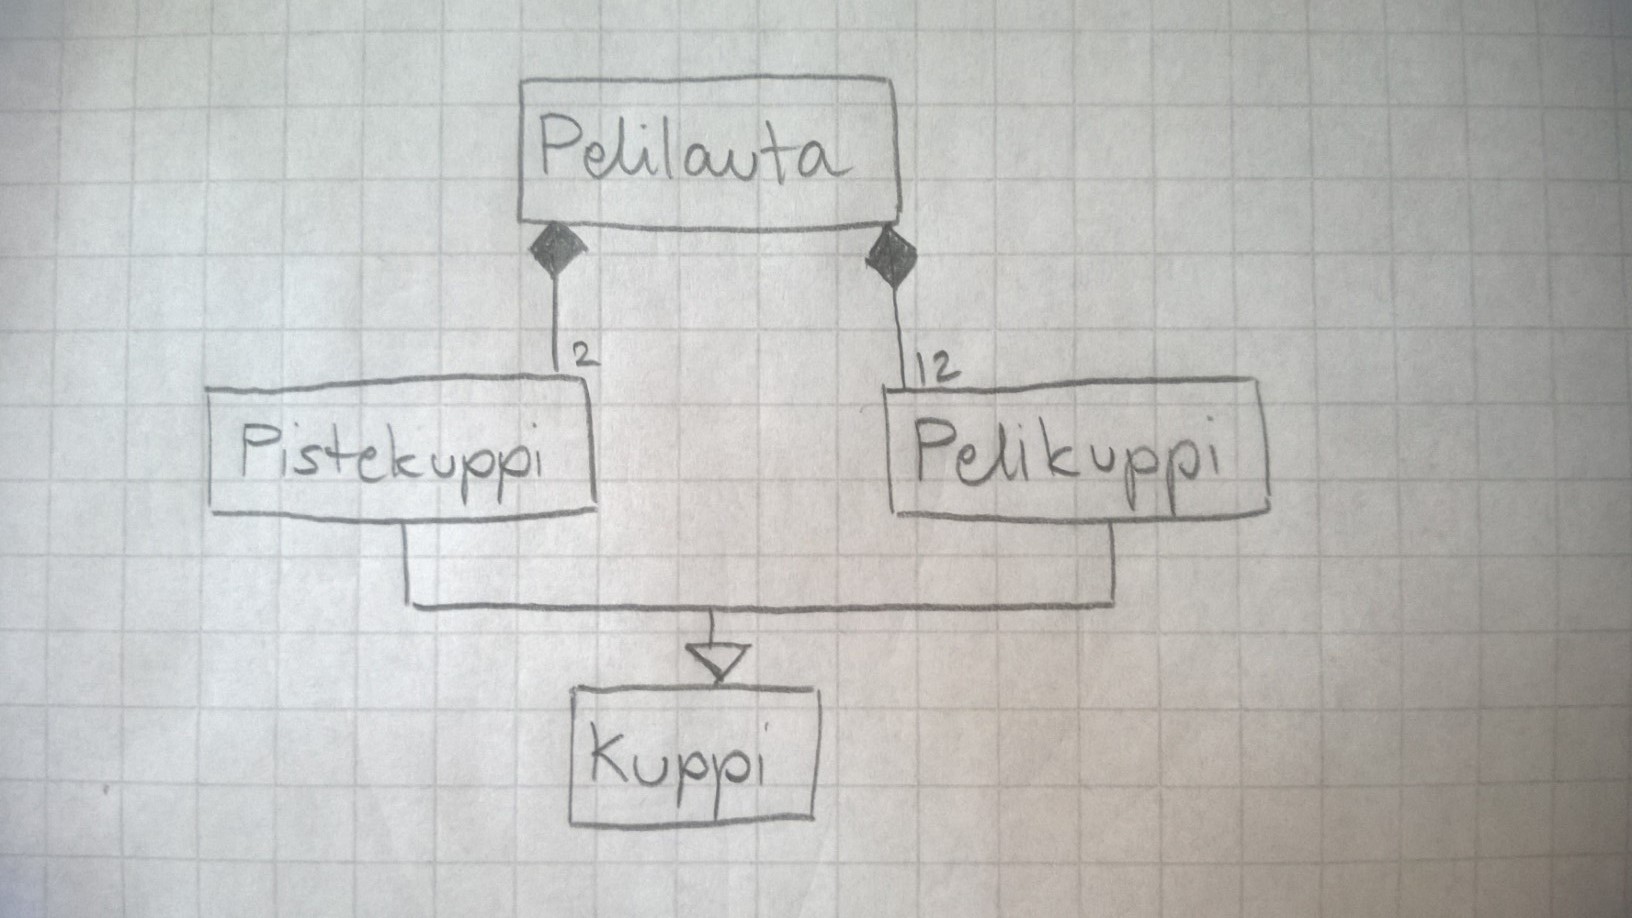 Pelilauta
2
12
Pistekuppi
Pelikuppi
Kuppi